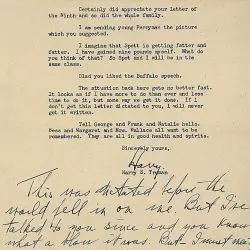 Certainly did appreciate your letter of
the Ninth and so did the whole family.
I am sending young Perryman the picture
which you suggested.
I imagine that Spott is getting fatter and
fatter. I have gained nine pounds myself. What do
you think of that? So Spot and I will be in the
same class.
Glad you liked the Buffalo speech.
The situation back here gets no better fast.
It looks as if I have more to do than ever and less
time to do it, but some way we get it done. If I
don't get this letter dictated to you, I will never
get it written.
Tell George and Frank and Natalie hello.
Bess and Margaret and Mrs. Wallace all want to be
remembered. They are all in good health and spirits.
Sincerely yours,
Harry
Harry S. Truman
This was dictated before the
world fell in on me. But I've
talked to you since and you know
what a blow it was. But I must